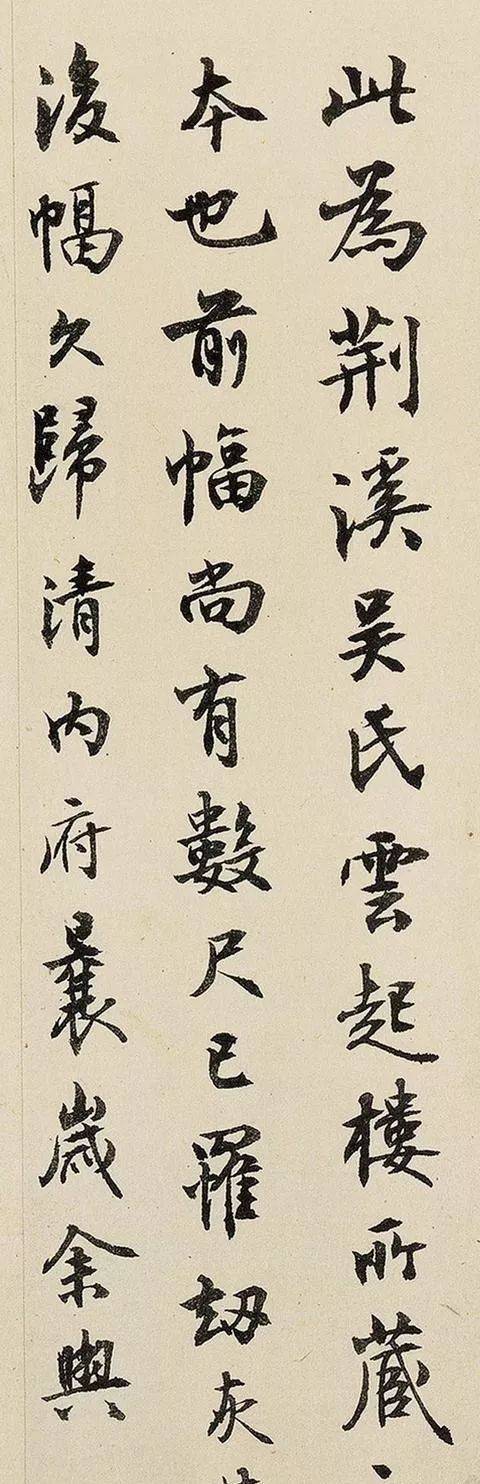 此為荆溪吴氏雲起樓所蔵
本也前幅尚有數尺已罹劫灰
後幅久歸清内府曩歲余與